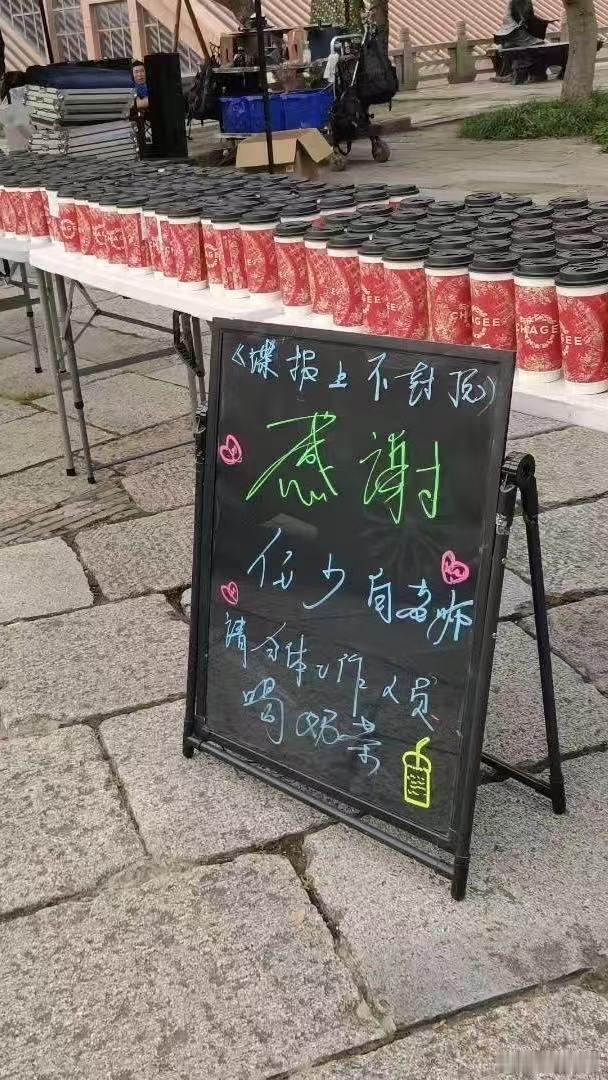 《谍报上不封顶》
感谢
任少白老师
请全体工作人员
喝奶茶
CHAGEE
CHAGEE